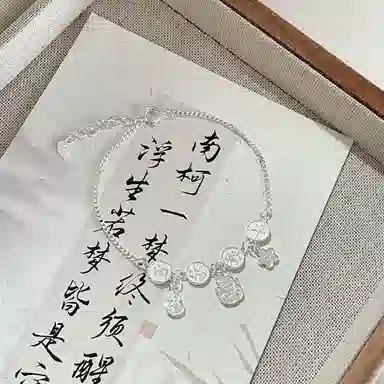 南柯一梦终须醒
浮生若梦皆是空